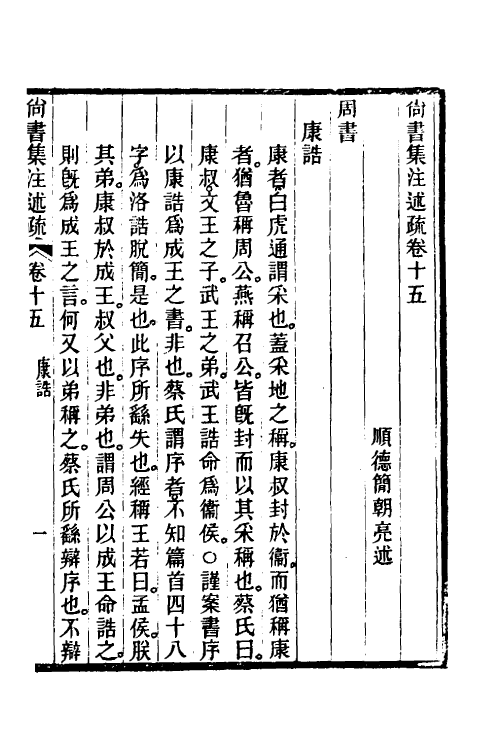 尙書集注述疏卷十五
順德簡朝亮述
周書
康誥
康者。白虎通謂采也。蓋采地之稱。康叔封於衞。而猶稱康
者。猶魯稱周公。燕稱召公。皆旣封而以其采稱也。蔡氏曰。
康叔。文王之子。武王之弟。武王誥命爲衞侯。○謹案書序
以康誥爲成王之書。非也。蔡氏謂序者。不知篇首四十八
字。爲洛誥脫簡。是也。此序所繇失也。經稱王若曰。孟侯。朕
其弟。康叔於成王。叔父也。非弟也。謂周公以成王命誥之。
則旣爲成王之言。何又以弟稱之。蔡氏所繇辯序也。不辯
尙書集注述疏 卷十五 康誥 一